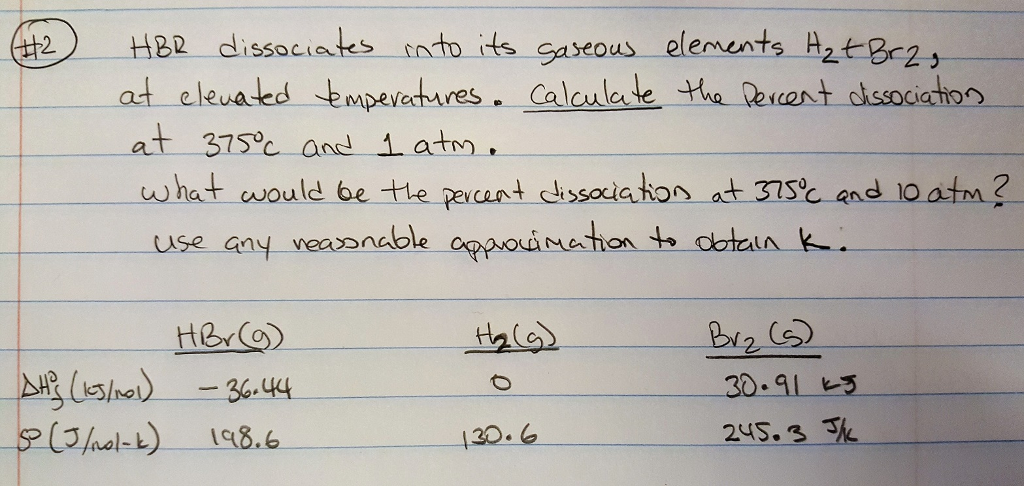 #2 HBR dissociates into its gaseous elements H2 + Br2,
at elevated temperatures. Calculate the Percent dissociation
at 375°C and 1 atm.
What would be the percent dissociation at 375°C and 10 atm?
use any reasonable approximation to obtain K.
HBr(g) H2(g) Br2 (g)
ΔH°f (kJ/mol) - 36.44 0 30.91 kJ
S° (J/mol-k) 198.6 130.6 245.3 J/k